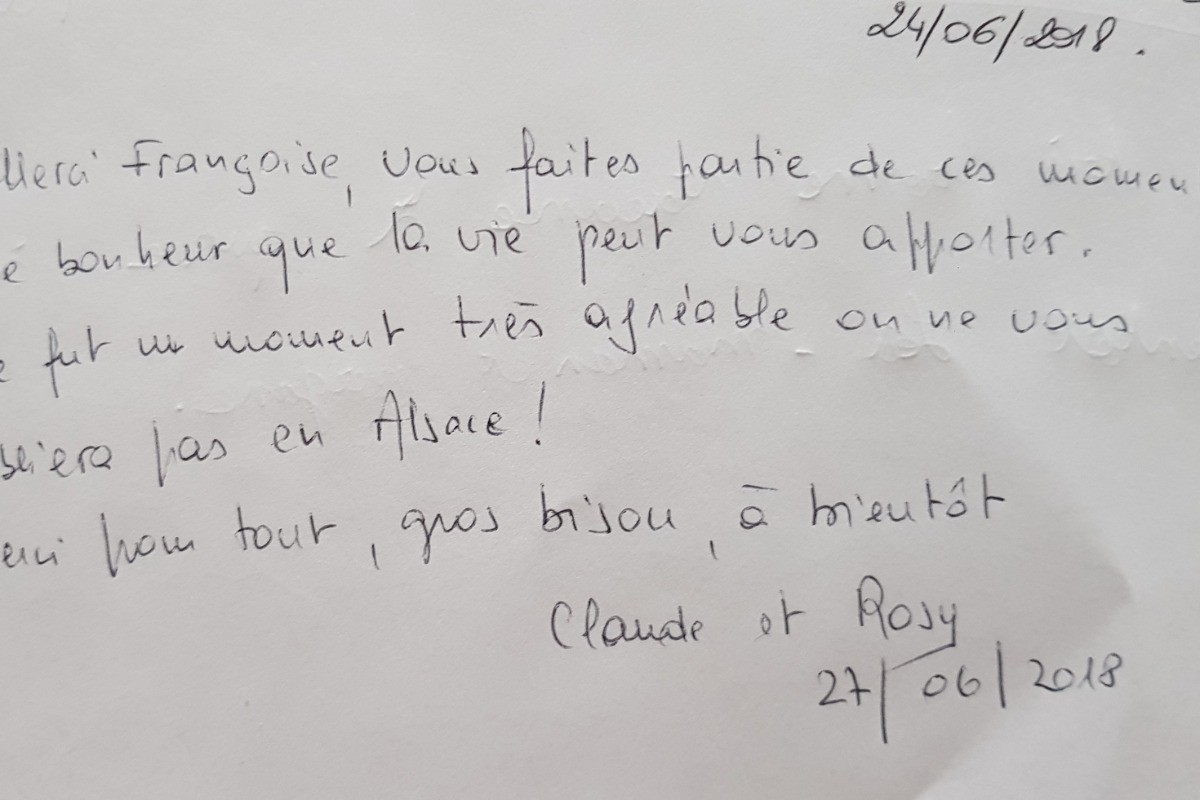 24/06/2018.
Merci Françoise, vous faites partie de ces momen
e bonheur que la vie peut vous apporter.
e fut un moment très agréable on ne vous
bliera pas en Alsace!
erci pour tout, gros bisou, à bientôt
Claude et Rosy
27/06/2018